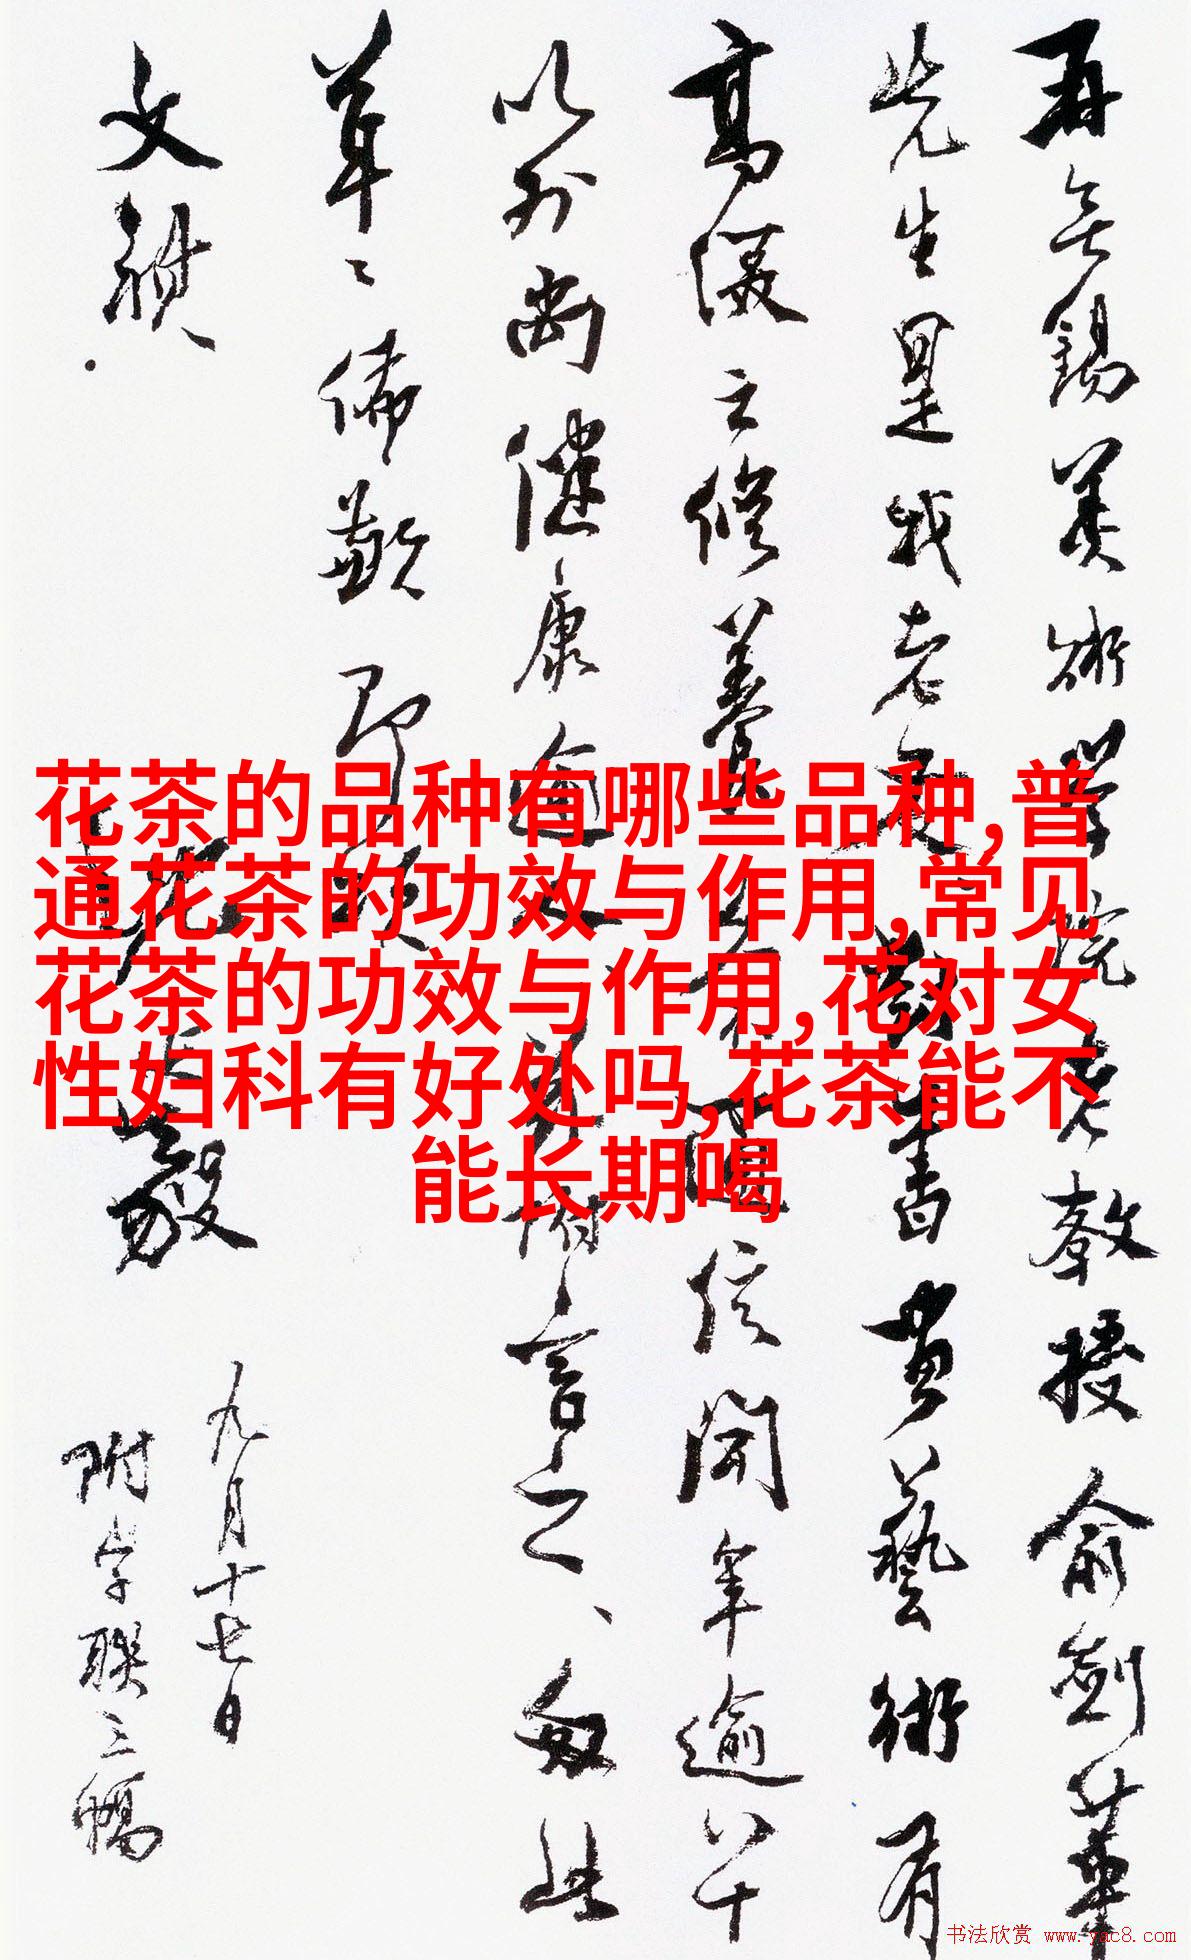 再無錫美術學院老教授俞劍華
先生是我老友對書畫藝術有
高深之修養
信聞年逾八十
以外尚健康
附言之、匆此
草〻佈歉即頌
文祺
九月十七日
附字聯三幅
花茶的品种有哪些品种,普
通花茶的功效与作用,常见
花茶的功效与作用,花对女
性妇科有好处吗,花茶能不
能长期喝
书法欣赏 www.yac8.com